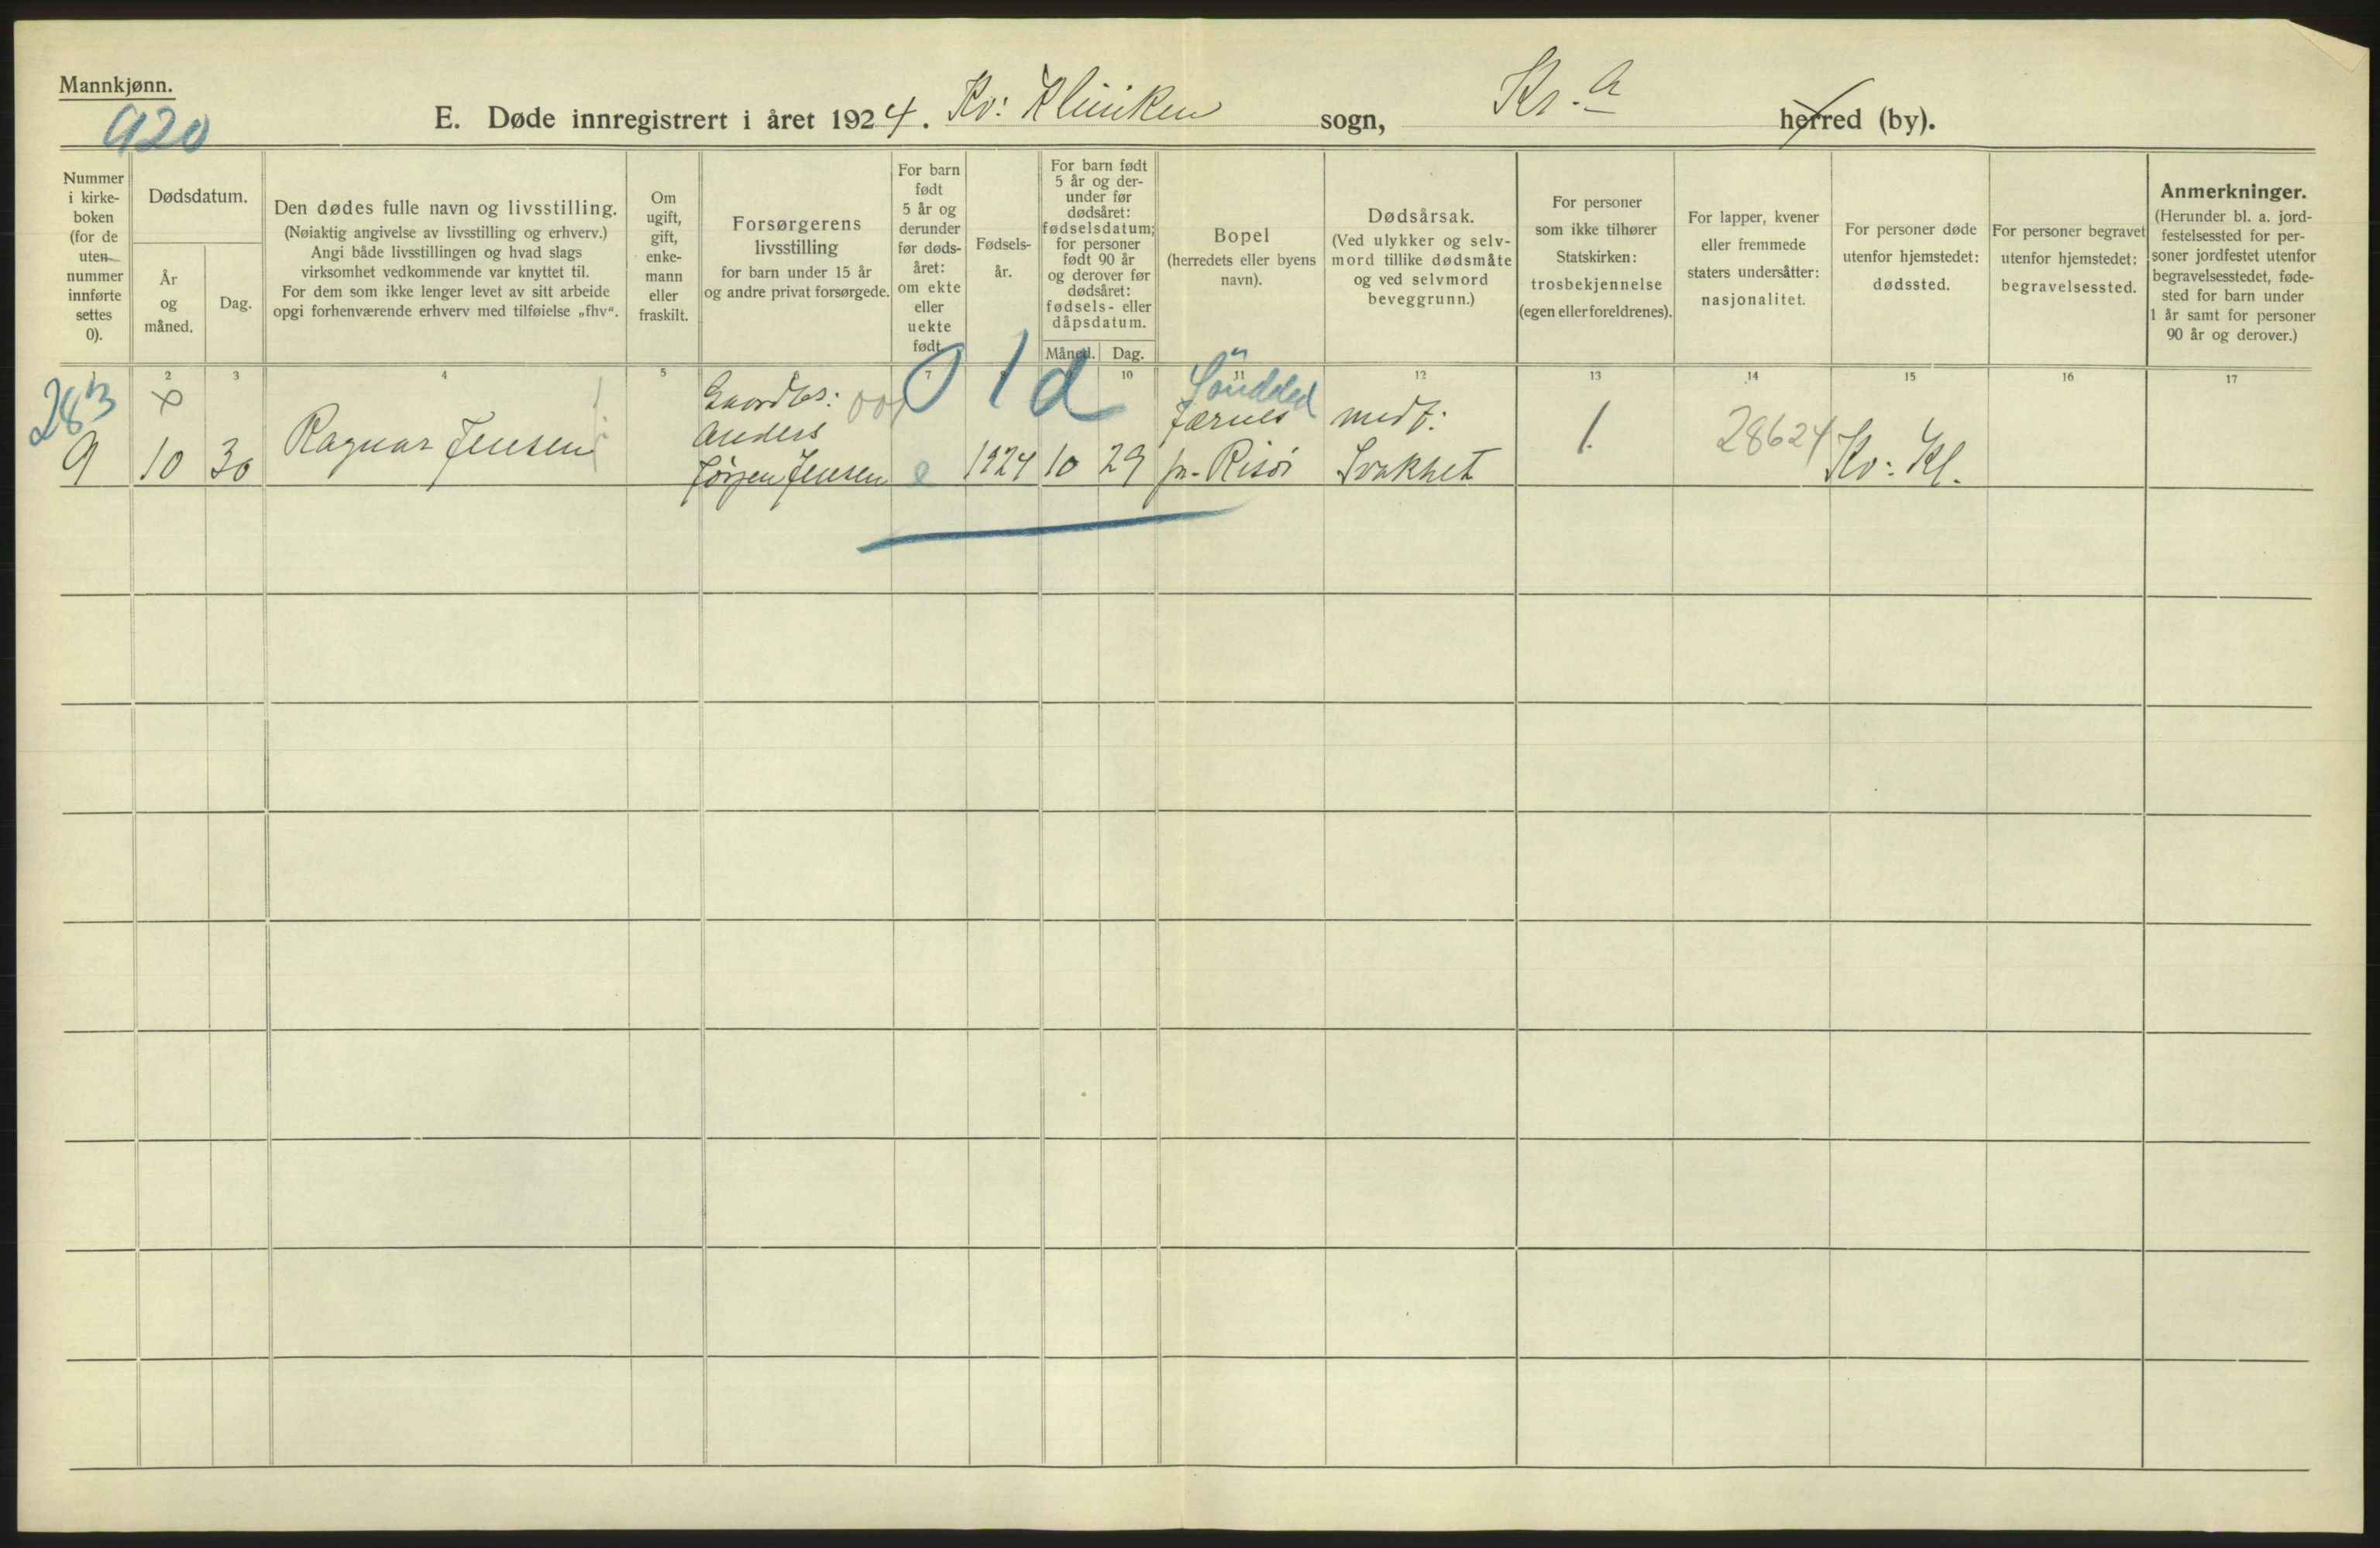 Mannkjønn.
920
E. Døde innregistrert i året 1924. Kv: Kliniken sogn, Kr.a herred (by).
Nummer
i kirke-
boken
(for de
uten
nummer
innførte
settes
0).
Dødsdatum.
År
og
måned.
Dag.
Den dødes fulle navn og livsstilling.
(Nøiaktig angivelse av livsstilling og erhverv.)
Angi både livsstillingen og hvad slags
virksomhet vedkommende var knyttet til.
For dem som ikke lenger levet av sitt arbeide
opgi forhenværende erhverv med tilføielse „fhv“.
Om
ugift,
gift,
enke-
mann
eller
fraskilt.
Forsørgerens
livsstilling
for barn under 15 år
og andre privat forsørgede.
For barn
født
5 år og
derunder
før døds-
året:
om ekte
eller
uekte
født.
Fødsels-
år.
For barn født
5 år og der-
under før
dødsåret:
fødselsdatum;
for personer
født 90 år
og derover før
dødsåret:
fødsels- eller
dåpsdatum.
Måned. Dag.
Bopel
(herredets eller byens
navn).
Dødsårsak.
(Ved ulykker og selv-
mord tillike dødsmåte
og ved selvmord
beveggrunn.)
For personer
som ikke tilhører
Statskirken:
trosbekjennelse
(egen eller foreldrenes).
For lapper, kvener
eller fremmede
staters undersåtter:
nasjonalitet.
For personer døde
utenfor hjemstedet:
dødssted.
For personer begravet
utenfor hjemstedet:
begravelsessted.
Anmerkninger.
(Herunder bl. a. jord-
festelsessted for per-
soner jordfestet utenfor
begravelsesstedet, føde-
sted for barn under
1 år samt for personer
90 år og derover.)
1 2 3 4 5 7 10 11 12 13 14 15 16 17
283
01d
Søndeled
9
10
30
Ragnar Jensen
Gaardbr:
Anders
Jørgen Jensen
e
1924
10
29
Jærnes
pr. Risör
medf:
Svakhet
1.
28624
Kv: Kl.